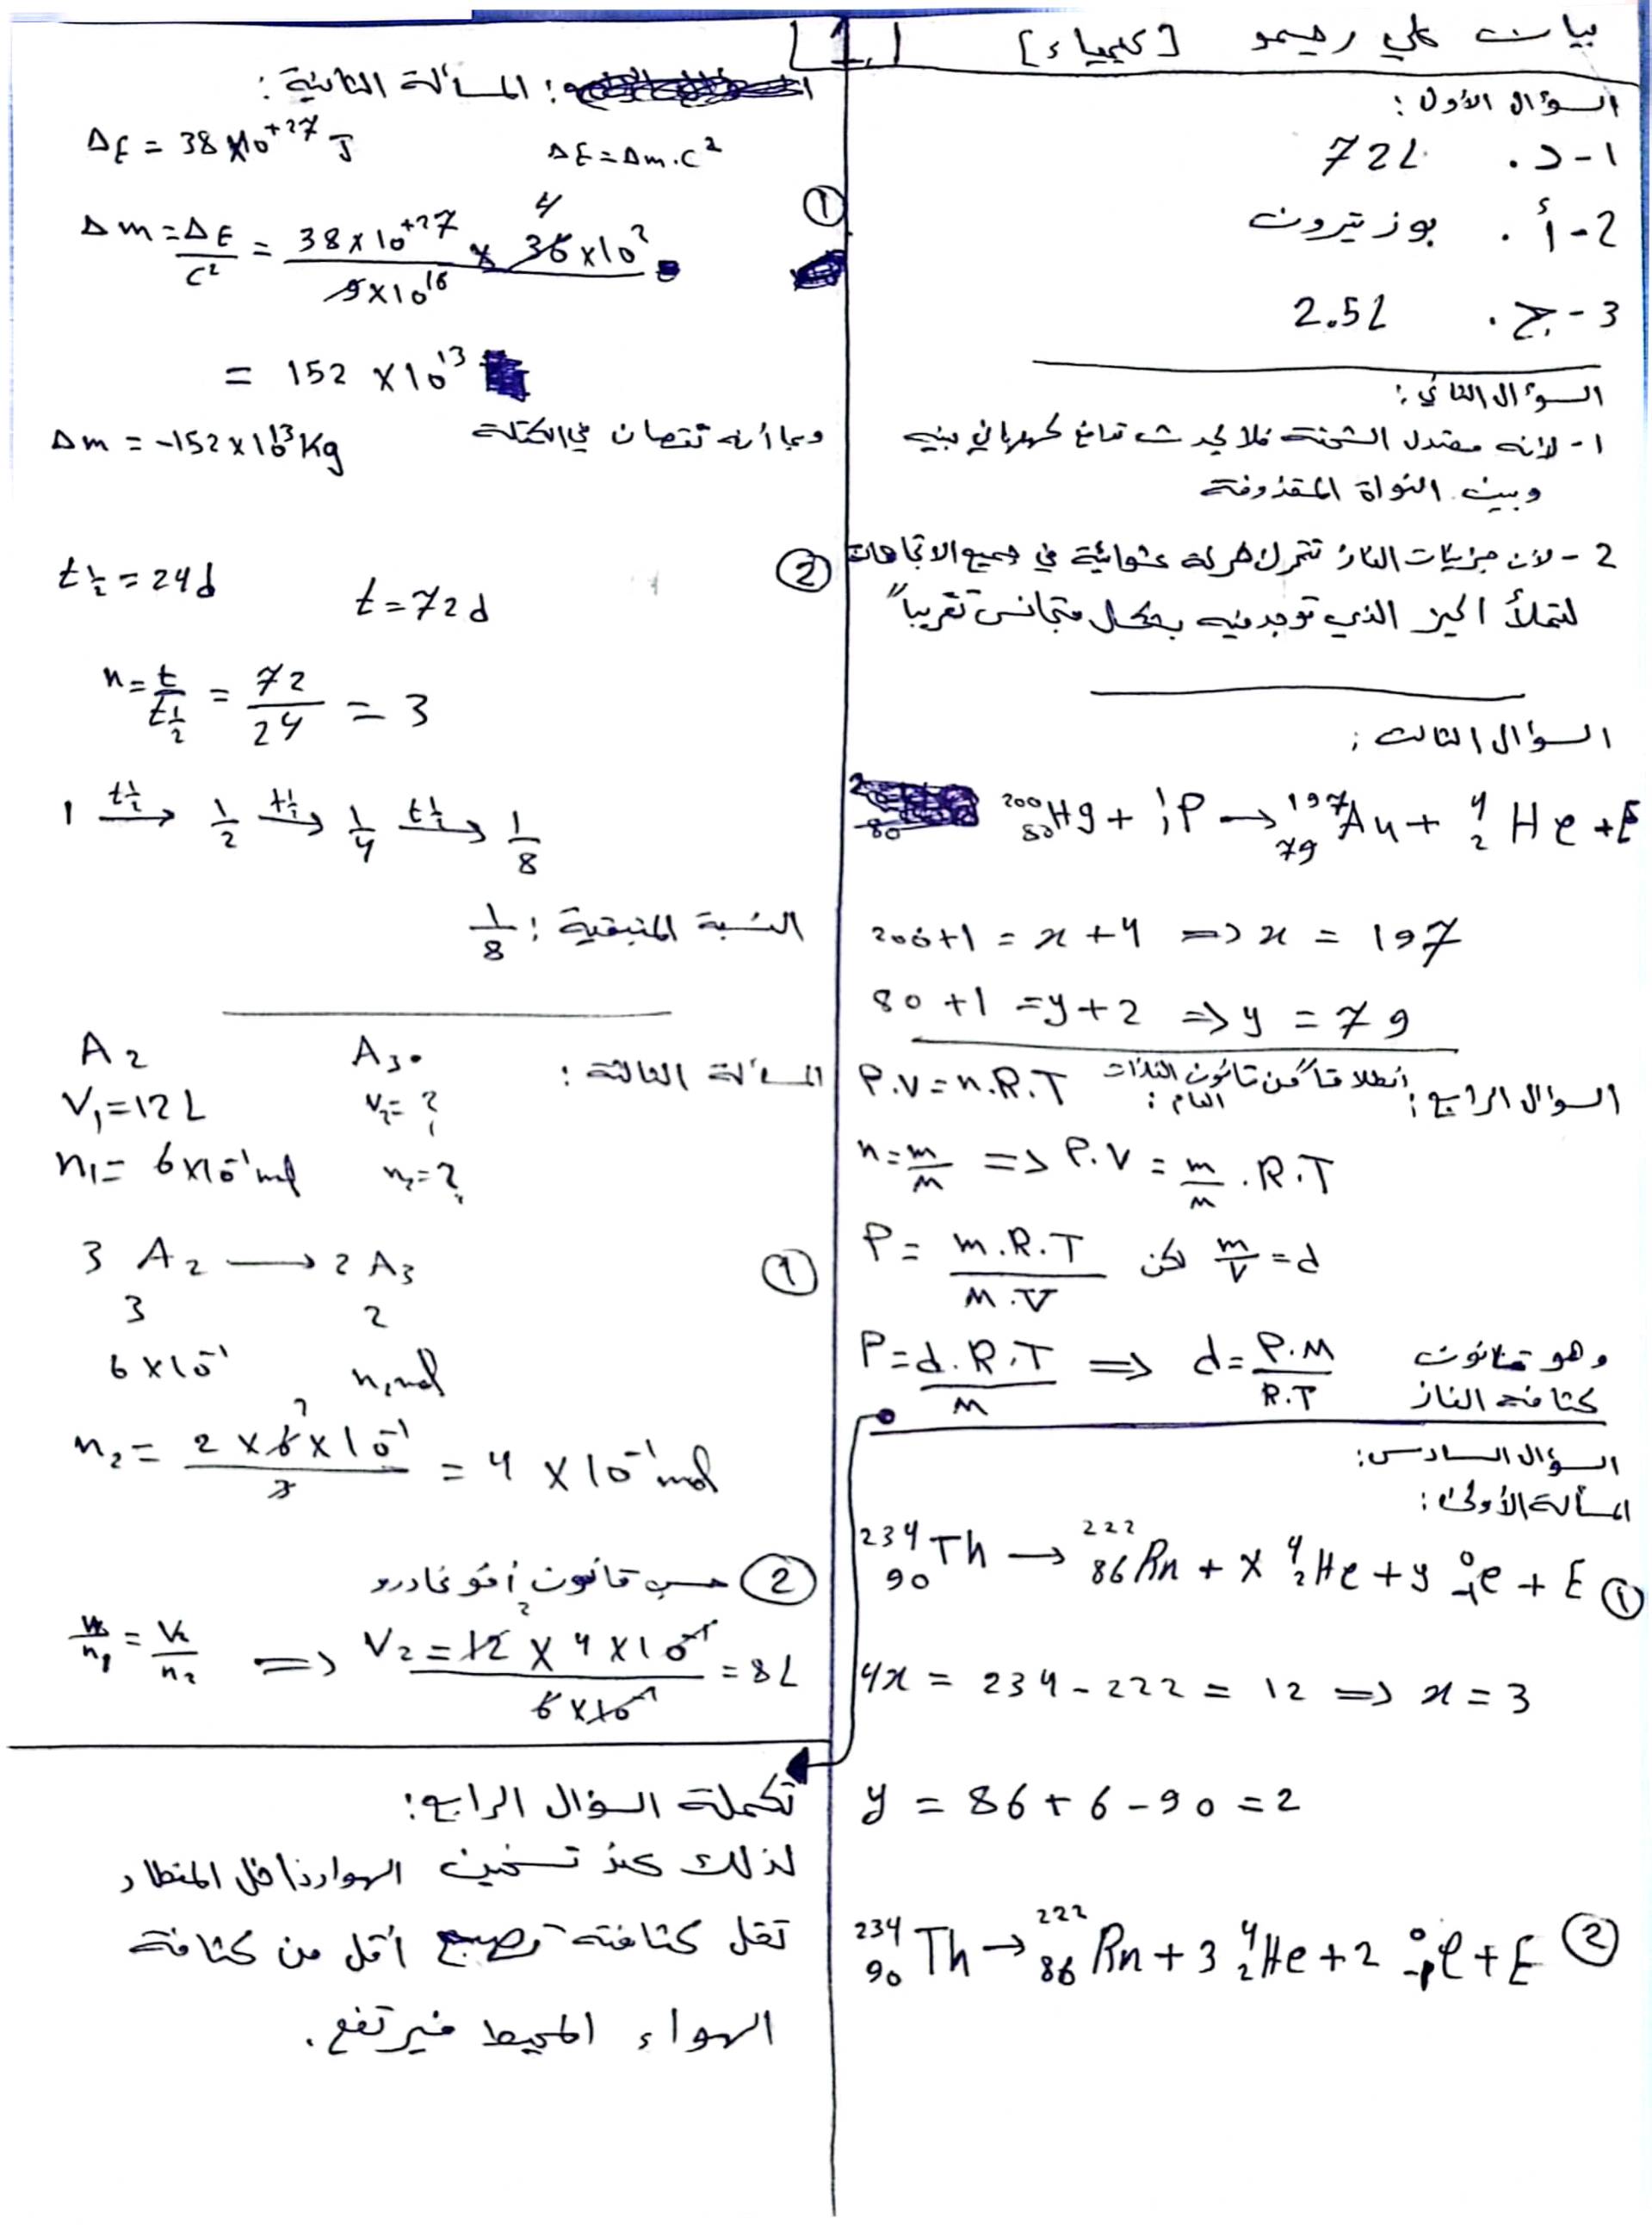 بيان علي رحيمو [كيمياء]
[1]
السؤال الأول:
1-د. 72L
2-أ. بوزيترون
3-ج. 2.5L
السؤال الثاني:
1- لأنه معتدل الشحنة فلا يحدث تدافع كهربائي بينه
وبين النواة المقذوفة
2- لأن جزيئات الغاز تتحرك حركة عشوائية في جميع الاتجاهات
لتملأ الحيز الذي توجد فيه بشكل متجانس تقريباً
السؤال الثالث:
²⁰⁰₈₀Hg + ¹₁P → ¹⁹⁷₇₉Au + ⁴₂He + E
200+1 = x + 4 => x = 197
80 + 1 = y + 2 => y = 79
السؤال الرابع: انطلاقاً من قانون الغازات العام: P.V = n.R.T
n = m/M => P.V = m/M . R.T
P = m.R.T/M.V لكن m/V = d
P = d.R.T/M => d = P.M/R.T وهو قانون
كثافة الغاز
السؤال السادس:
المسألة الأولى:
²³⁴₉₀Th → ²²²₈₆Rn + x ⁴₂He + y ⁰₋₁e + E ①
4x = 234 - 222 = 12 => x = 3
y = 86 + 6 - 90 = 2
²³⁴₉₀Th → ²²²₈₆Rn + 3 ⁴₂He + 2 ⁰₋₁e + E ②
المسألة الثانية:
ΔE = 38×10⁺²⁷ J ΔE = Δm.c²
① Δm = ΔE/c² = 38×10⁺²⁷/9×10¹⁶ × 36×10² 4
= 152 ×10¹³
وبما أنه نقصان في الكتلة Δm = -152×10¹³ Kg
② t½ = 24d t = 72d
n = t/t½ = 72/24 = 3
1 t½→ 1/2 t½→ 1/4 t½→ 1/8
النسبة المتبقية: 1/8
المسألة الثالثة:
A₂ A₃
V₁ = 12L V₂ = ?
n₁ = 6×10⁻¹ mol n₂ = ?
① 3 A₂ → 2 A₃
3 2
6×10⁻¹ n₂ mol
n₂ = 2 × 6 × 10⁻¹/3 = 4 × 10⁻¹ mol
② حسب قانون أفوغادرو
V₁/n₁ = V₂/n₂ => V₂ = 12 × 4 × 10⁻¹/6×10⁻¹ = 8L
تكملة السؤال الرابع:
لذلك عند تسخين الهواء داخل المنطاد
تقل كثافته وتصبح أقل من كثافة
الهواء المحيط فيرتفع.